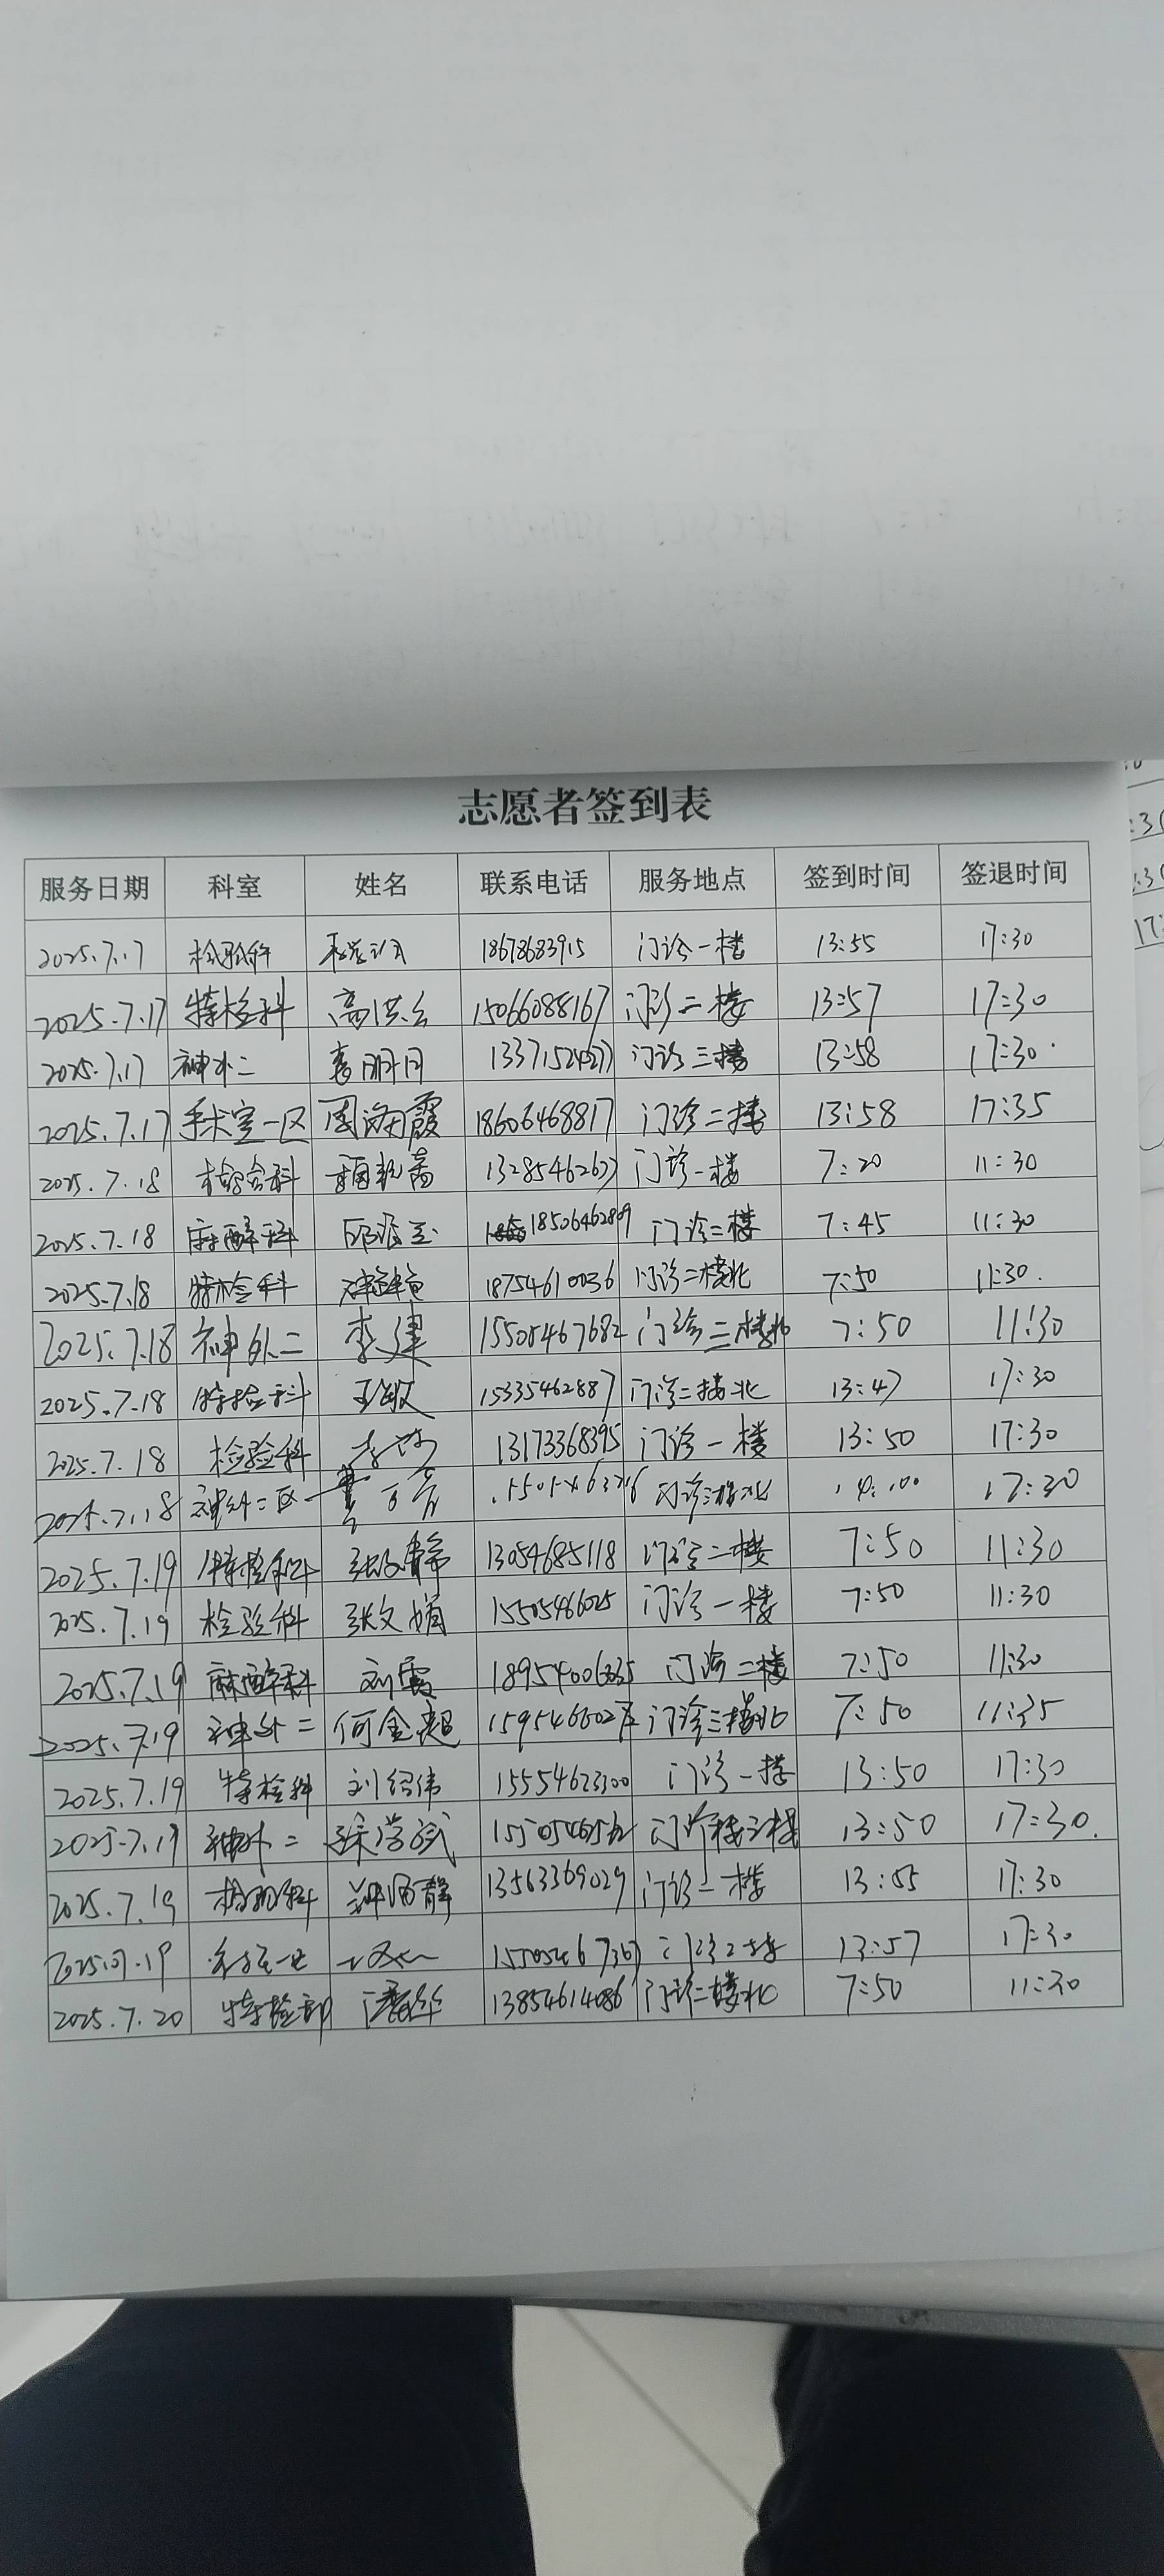 志愿者签到表
服务日期 科室 姓名 联系电话 服务地点 签到时间 签退时间
2025.7.17 检验科 18678683915 门诊一楼 13:55 17:30
2025.7.17 特检科 高洪云 15066088167 门诊二楼 13:57 17:30
2025.7.17 神外二 门诊三楼 13:58 17:30
2025.7.17 手术室一区 18606468817 门诊二楼 13:58 17:35
2025.7.18 检验科 13285462677 门诊一楼 7:20 11:30
2025.7.18 麻醉科 18506462809 门诊二楼 7:45 11:30
2025.7.18 特检科 18754610036 门诊二楼北 7:50 11:30
2025.7.18 神外二 李建 15505467682 门诊三楼北 7:50 11:30
2025.7.18 特检科 王敏 15335462887 门诊二楼北 13:47 17:30
2025.7.18 检验科 13173368395 门诊一楼 13:50 17:30
2025.7.18 神外二区 门诊三楼北 14:00 17:30
2025.7.19 特检科 13054685118 门诊二楼 7:50 11:30
2025.7.19 检验科 张文娟 15505466025 门诊一楼 7:50 11:30
2025.7.19 麻醉科 刘霞 门诊二楼 7:50 11:30
2025.7.19 神外二 何金超 门诊三楼北 7:50 11:35
2025.7.19 特检科 刘绍伟 15554623300 门诊一楼 13:50 17:30
2025.7.19 神外二 门诊楼三楼 13:50 17:30
2025.7.19 检验科 13563369029 门诊一楼 13:55 17:30
2025.7.19 15505467367 门诊二楼 13:57 17:30
2025.7.20 特检部 13854614086 门诊二楼北 7:50 11:30